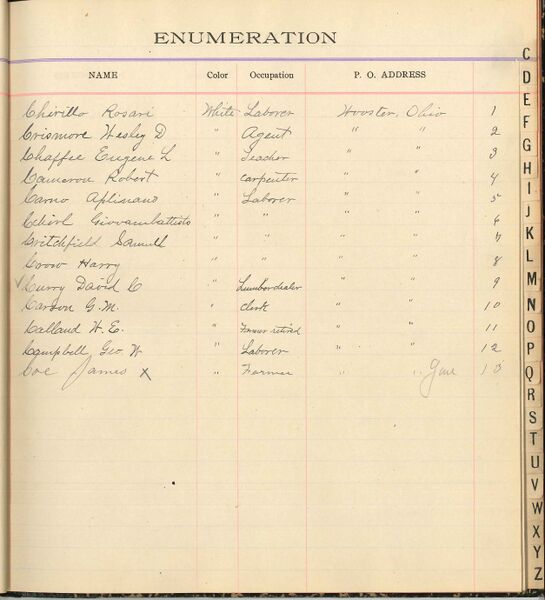 ENUMERATION
NAME Color Occupation P. O. ADDRESS
Chirillo Rosari White Laborer Wooster, Ohio 1
Crismore Wesley D " Agent " " 2
Chaffee Eugene L " Teacher " " 3
Cameron Robert " Carpenter " " 4
Carno " Laborer " " 5
Giovambattisto " " " " 6
Critchfield Samuel " " " " 7
Crow Harry " " " " 8
✓ Curry David C " Lumber dealer " " 9
Carson G. M. " Clerk " " 10
Calland W. E. " Farmer retired " " 11
Campbell Geo. W " Laborer " " 12
Coe James X " Farmer " " Gone 13
C
D
E
F
G
H
I
J
K
L
M
N
O
P
Q
R
S
T
U
V
W
X
Y
Z